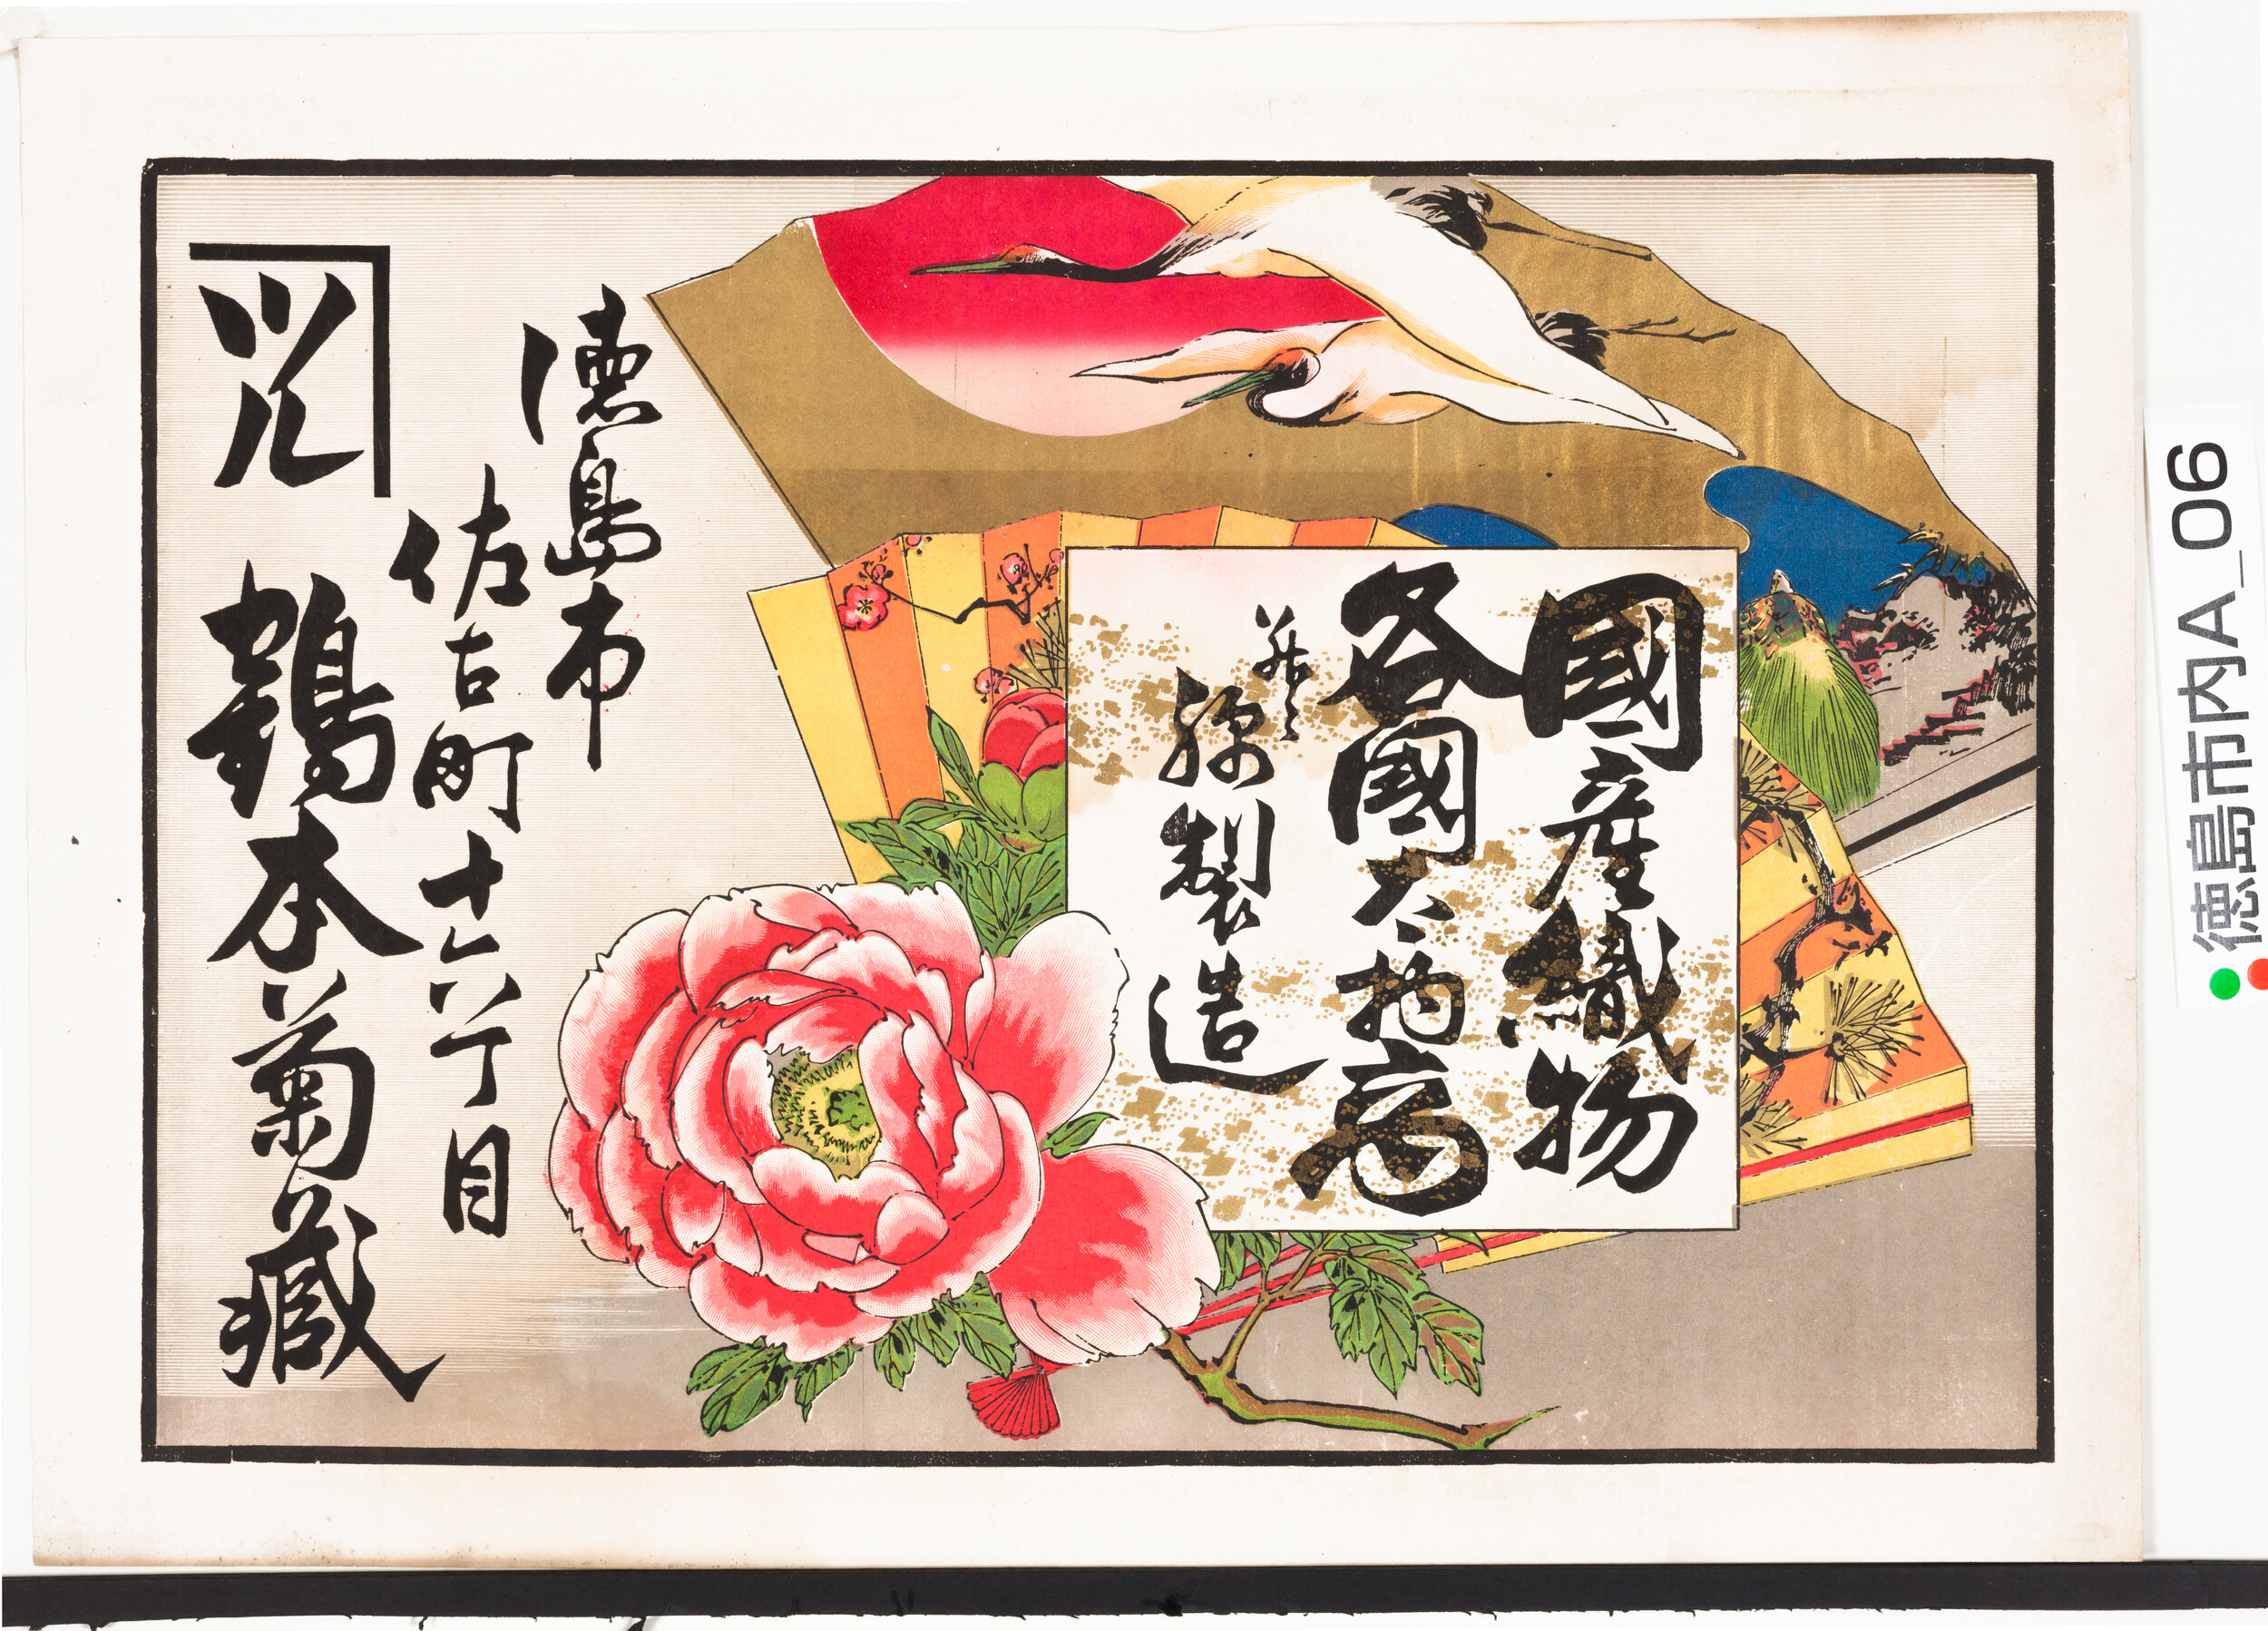 國産織物
各國太物商
并ニ
綿製造
徳島市
佐古町十六丁目
鶴本菊藏
徳島市内A_06